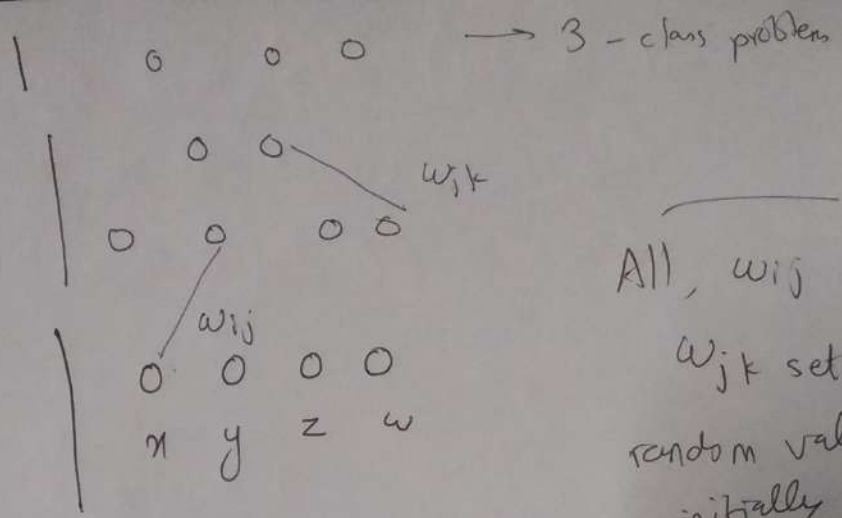 → 3 - class problem
wjk
wij
x y z w
All, wij
wjk set
random val
initially